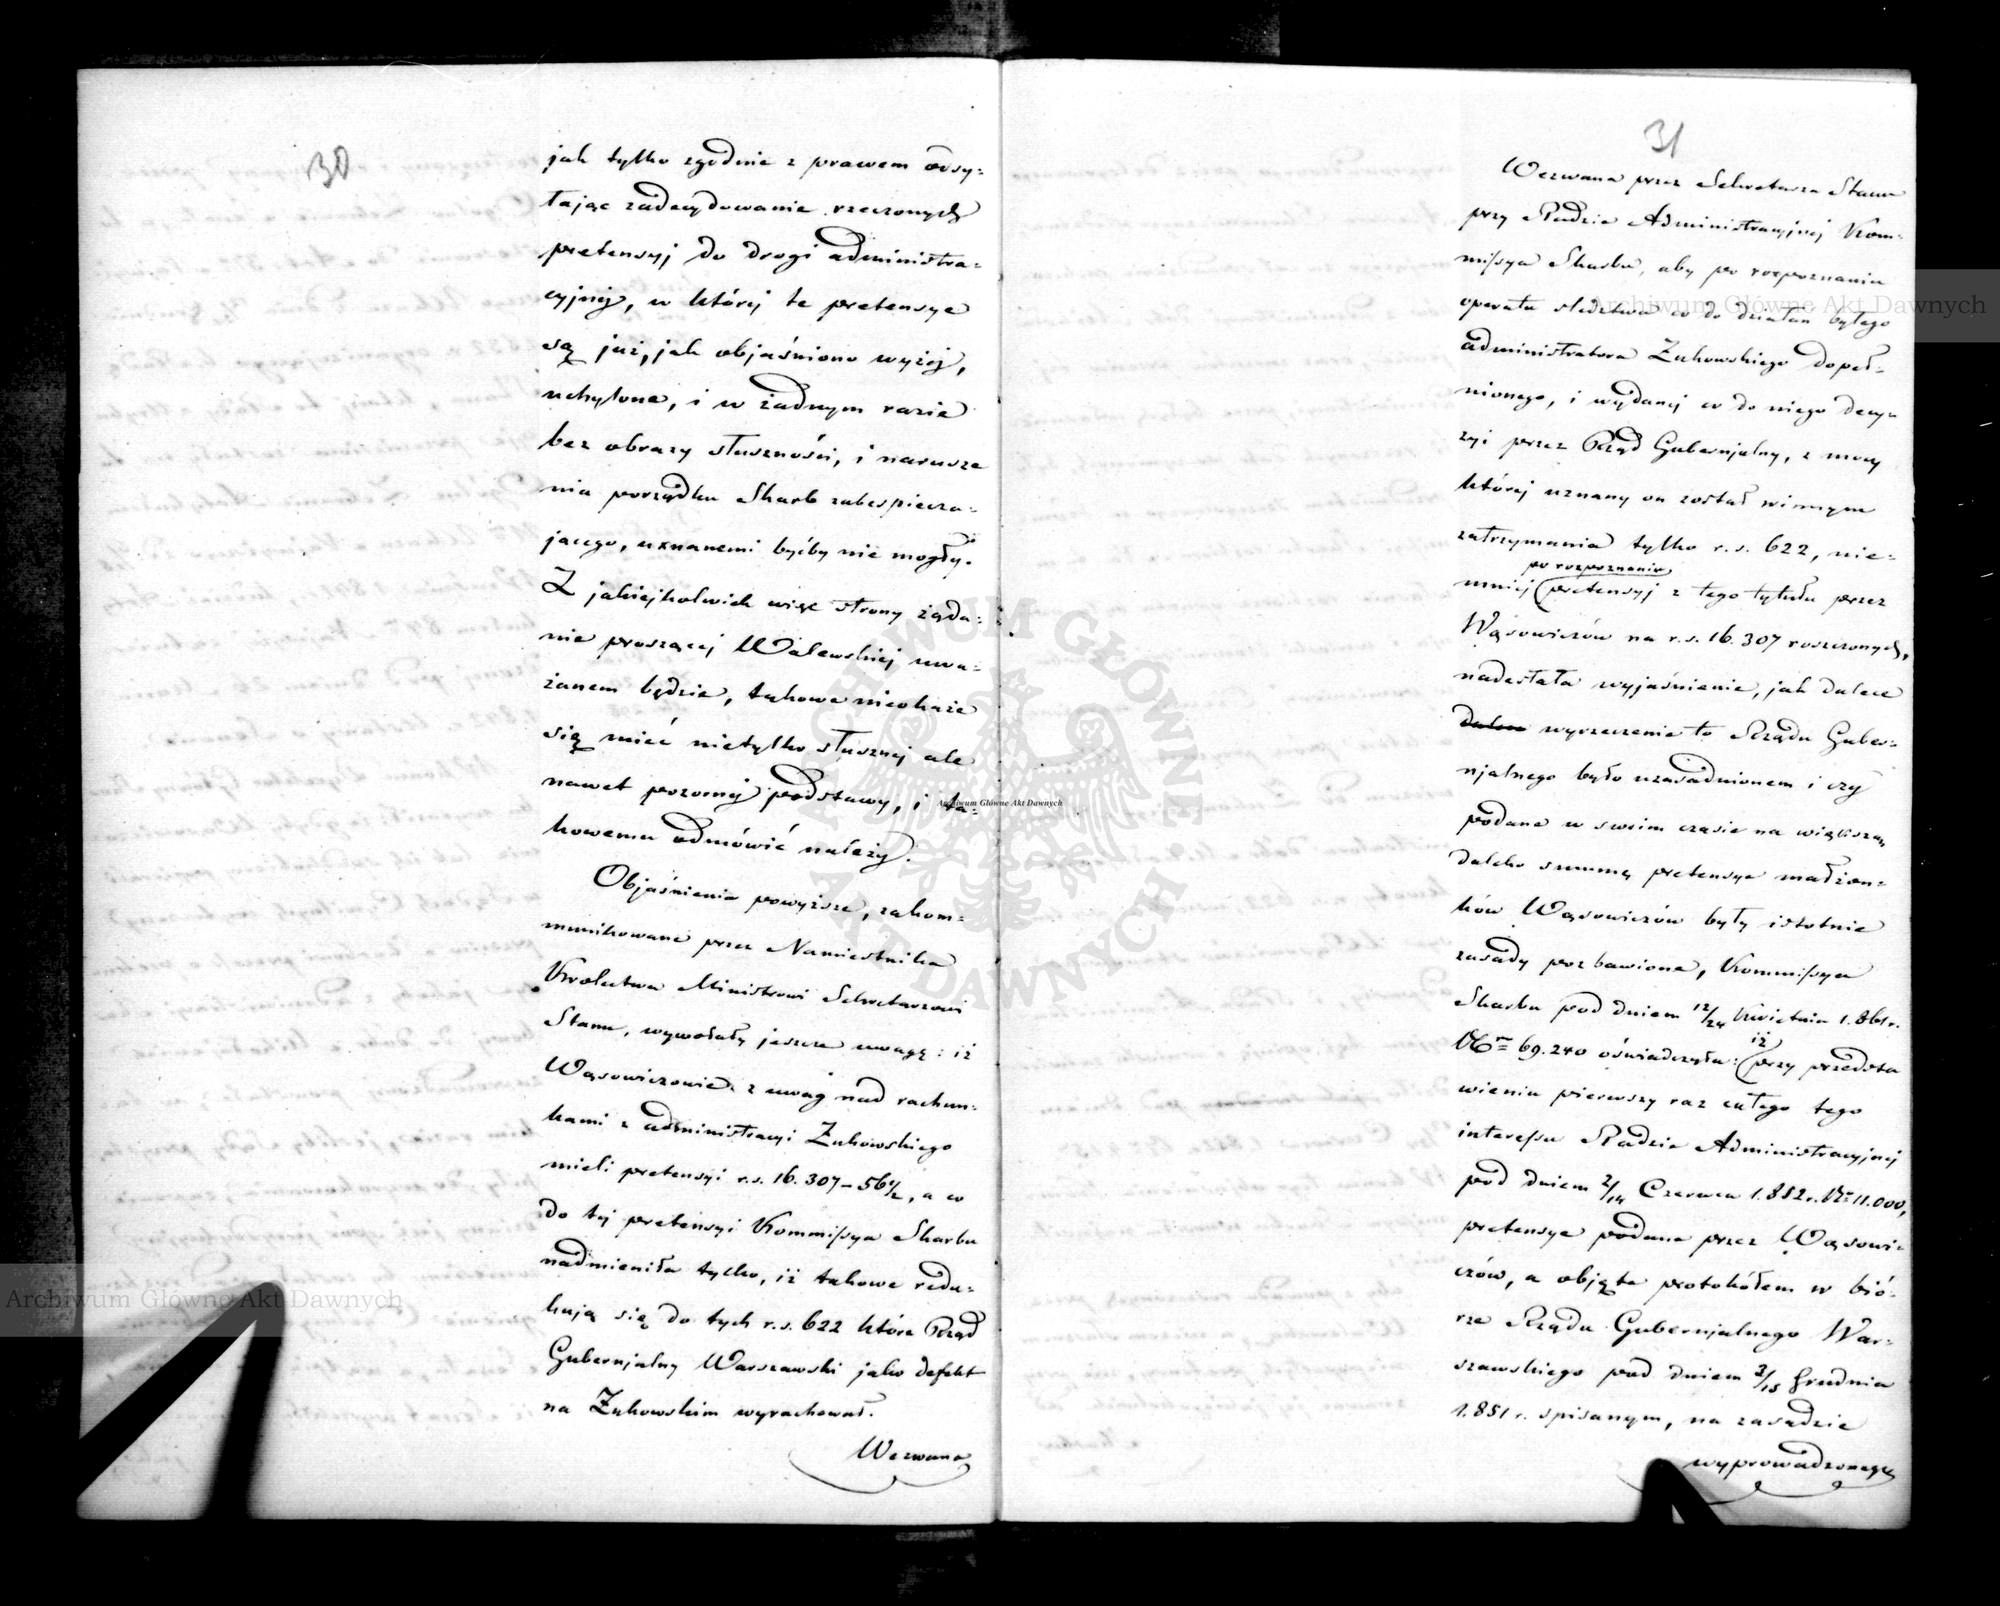 30
jak tylko zgodnie z prawem odsy-
łając zadecydowanie rzeczonych
pretensyj do drogi administra-
cyjnéj, w któréj te pretensye
są już, jak objaśniono wyżéj,
uchylone, i w żadnym razie
bez obrazy słuszności, i narusze
nia porządku Skarb zabespiecza-
jącego, uznanemi byćby nie mogły.
Z jakiejkolwiek więc strony żąda-
nie proszącéj Walewskiéj uwa-
żanem będzie, takowe nieokaże
się mieć nietylko słusznéj ale
nawet pozornéj podstawy, i ta-
kowemu odmówić należy.
Objaśnienia powyższe, zakom-
munikowane przez Namiestnika
Królestwa Ministrowi Sekretarzowi
Stanu, wywołały jeszcze uwagę: iż
Wąsowiczowie z uwag nad rachun-
kami z administracyi Żukowskiego
mieli pretensyi r.s. 16.307-56½, a co
do téj pretensyi Kommissya Skarbu
nadmieniła tylko, iż takowe redu-
kują się do tych r.s. 622 które Rząd
Gubernjalny Warszawski jako defekt
na Żukowskim wyrachował.
Wezwana
31
Wezwana przez Sekretarza Stanu
przy Radzie Administracyjnéj Kom-
missya Skarbu, aby po rozpoznaniu
operatu śledztwa co do działań byłego
administratora Żukowskiego dopeł-
nionego, i wydanéj co do niego decy-
zyi przez Rząd Gubernjalny, z mocy
któréj uznany on został winnym
zatrzymania tylko r.s. 622, nie-
po rozpoznaniu
mniéj pretensyj z tego tytułu przez
Wąsowiczów na r.s. 16.307 roszczonych,
nadesłała wyjaśnienie, jak dalece
dalece wyrzeczenie to Rządu Guber-
njalnego było uzasadnionem i czy
podane w swoim czasie na większą
daleko summę pretensye małżon-
ków Wąsowiczów były istotnie
zasady pozbawione, Kommissya
Skarbu pod dniem 12/24 Kwietnia 1.861 r.
iż
Nr 69.240 oświadczyła: przy przedsta
wieniu pierwszy raz całego tego
interessu Radzie Administracyjnéj
pod dniem 2/14 Czerwca 1.852 r. Nr 11.000,
pretensye podane przez Wąsowi-
czów, a objęte protokółem w bió-
rze Rządu Gubernjalnego War-
szawskiego pod dniem 3/15 Grudnia
1.851 r. spisanym, na zasadzie
wyprowadzonego
Archiwum Główne Akt Dawnych
Archiwum Główne Akt Dawnych
Archiwum Główne Akt Dawnych
ARCHIWUM GŁÓWNE AKT DAWNYCH